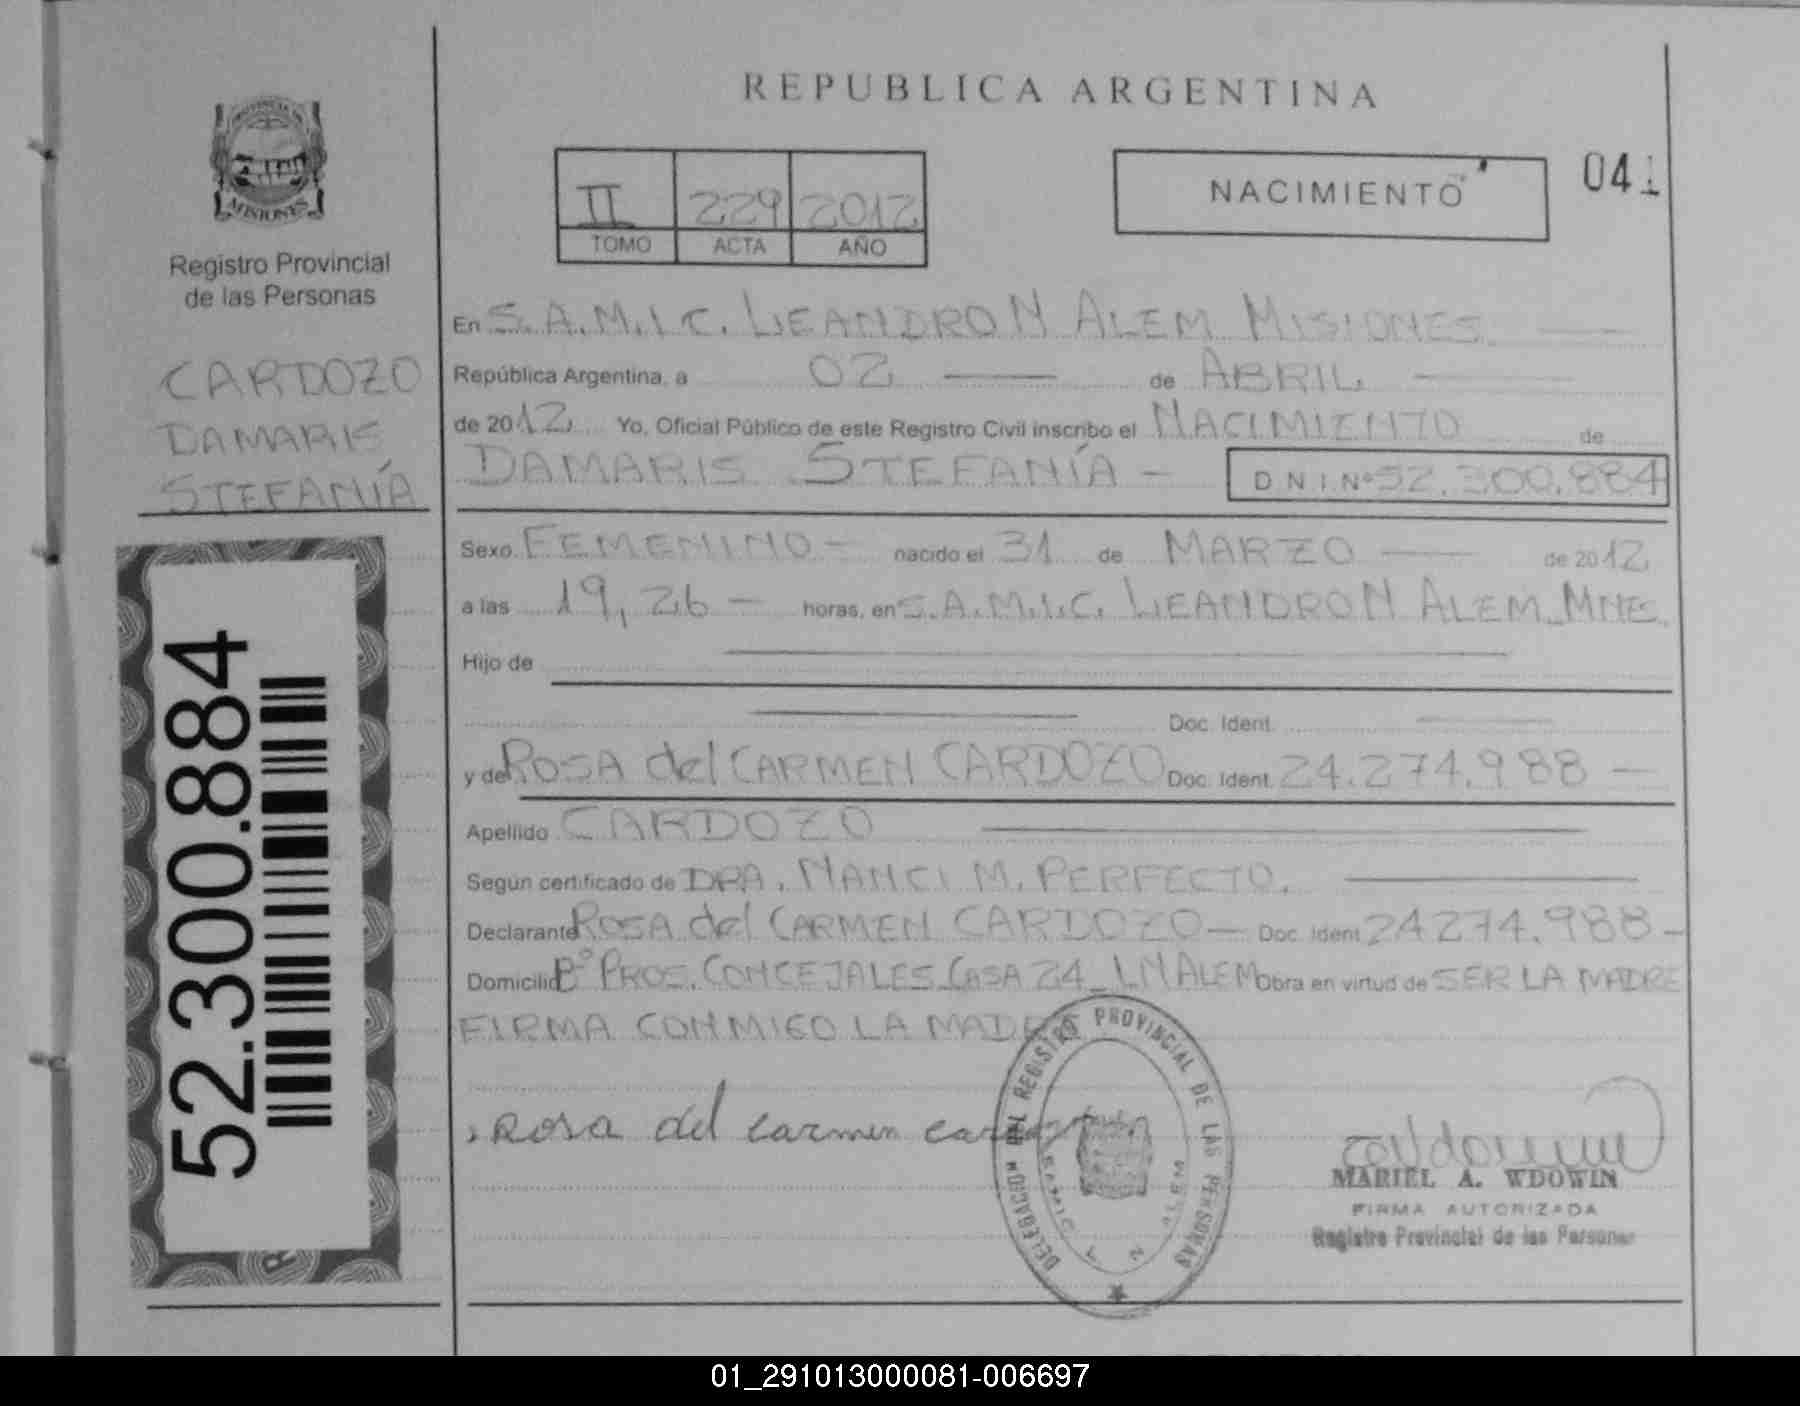 REPUBLICA ARGENTINA
PROVINCIA DE
MISIONES
Registro Provincial
de las Personas
CARDOZO
DAMARIS
STEFANÍA
52.300.884
II 229 2012
TOMO ACTA AÑO
NACIMIENTO
041
En S.A.M.I.C. LEANDRO N ALEM MISIONES
República Argentina, a 02 de ABRIL
de 2012 Yo, Oficial Público de este Registro Civil inscribo el NACIMIENTO de
DAMARIS STEFANÍA - D N I Nº 52.300.884
Sexo FEMENINO - nacido el 31 de MARZO de 2012
a las 19,26 - horas, en S.A.M.I.C. LEANDRO N ALEM MNES.
Hijo de
Doc. Ident.
y de ROSA del CARMEN CARDOZO Doc. Ident. 24.274.988 -
Apellido CARDOZO
Según certificado de DRA. NANCI M. PERFECTO.
Declarante ROSA del CARMEN CARDOZO - Doc. Ident 24274.988 -
Domicilio Bº PROS. CONCEJALES CASA 24 - LN ALEM Obra en virtud de SER LA MADRE
FIRMA CONMIGO LA MADRE
Rosa del carmen cardozo
DELEGACION DEL REGISTRO PROVINCIAL DE LAS PERSONAS
SAMIC L. N. ALEM
MARIEL A. WDOWIN
FIRMA AUTORIZADA
Registro Provincial de las Personas
01_291013000081-006697